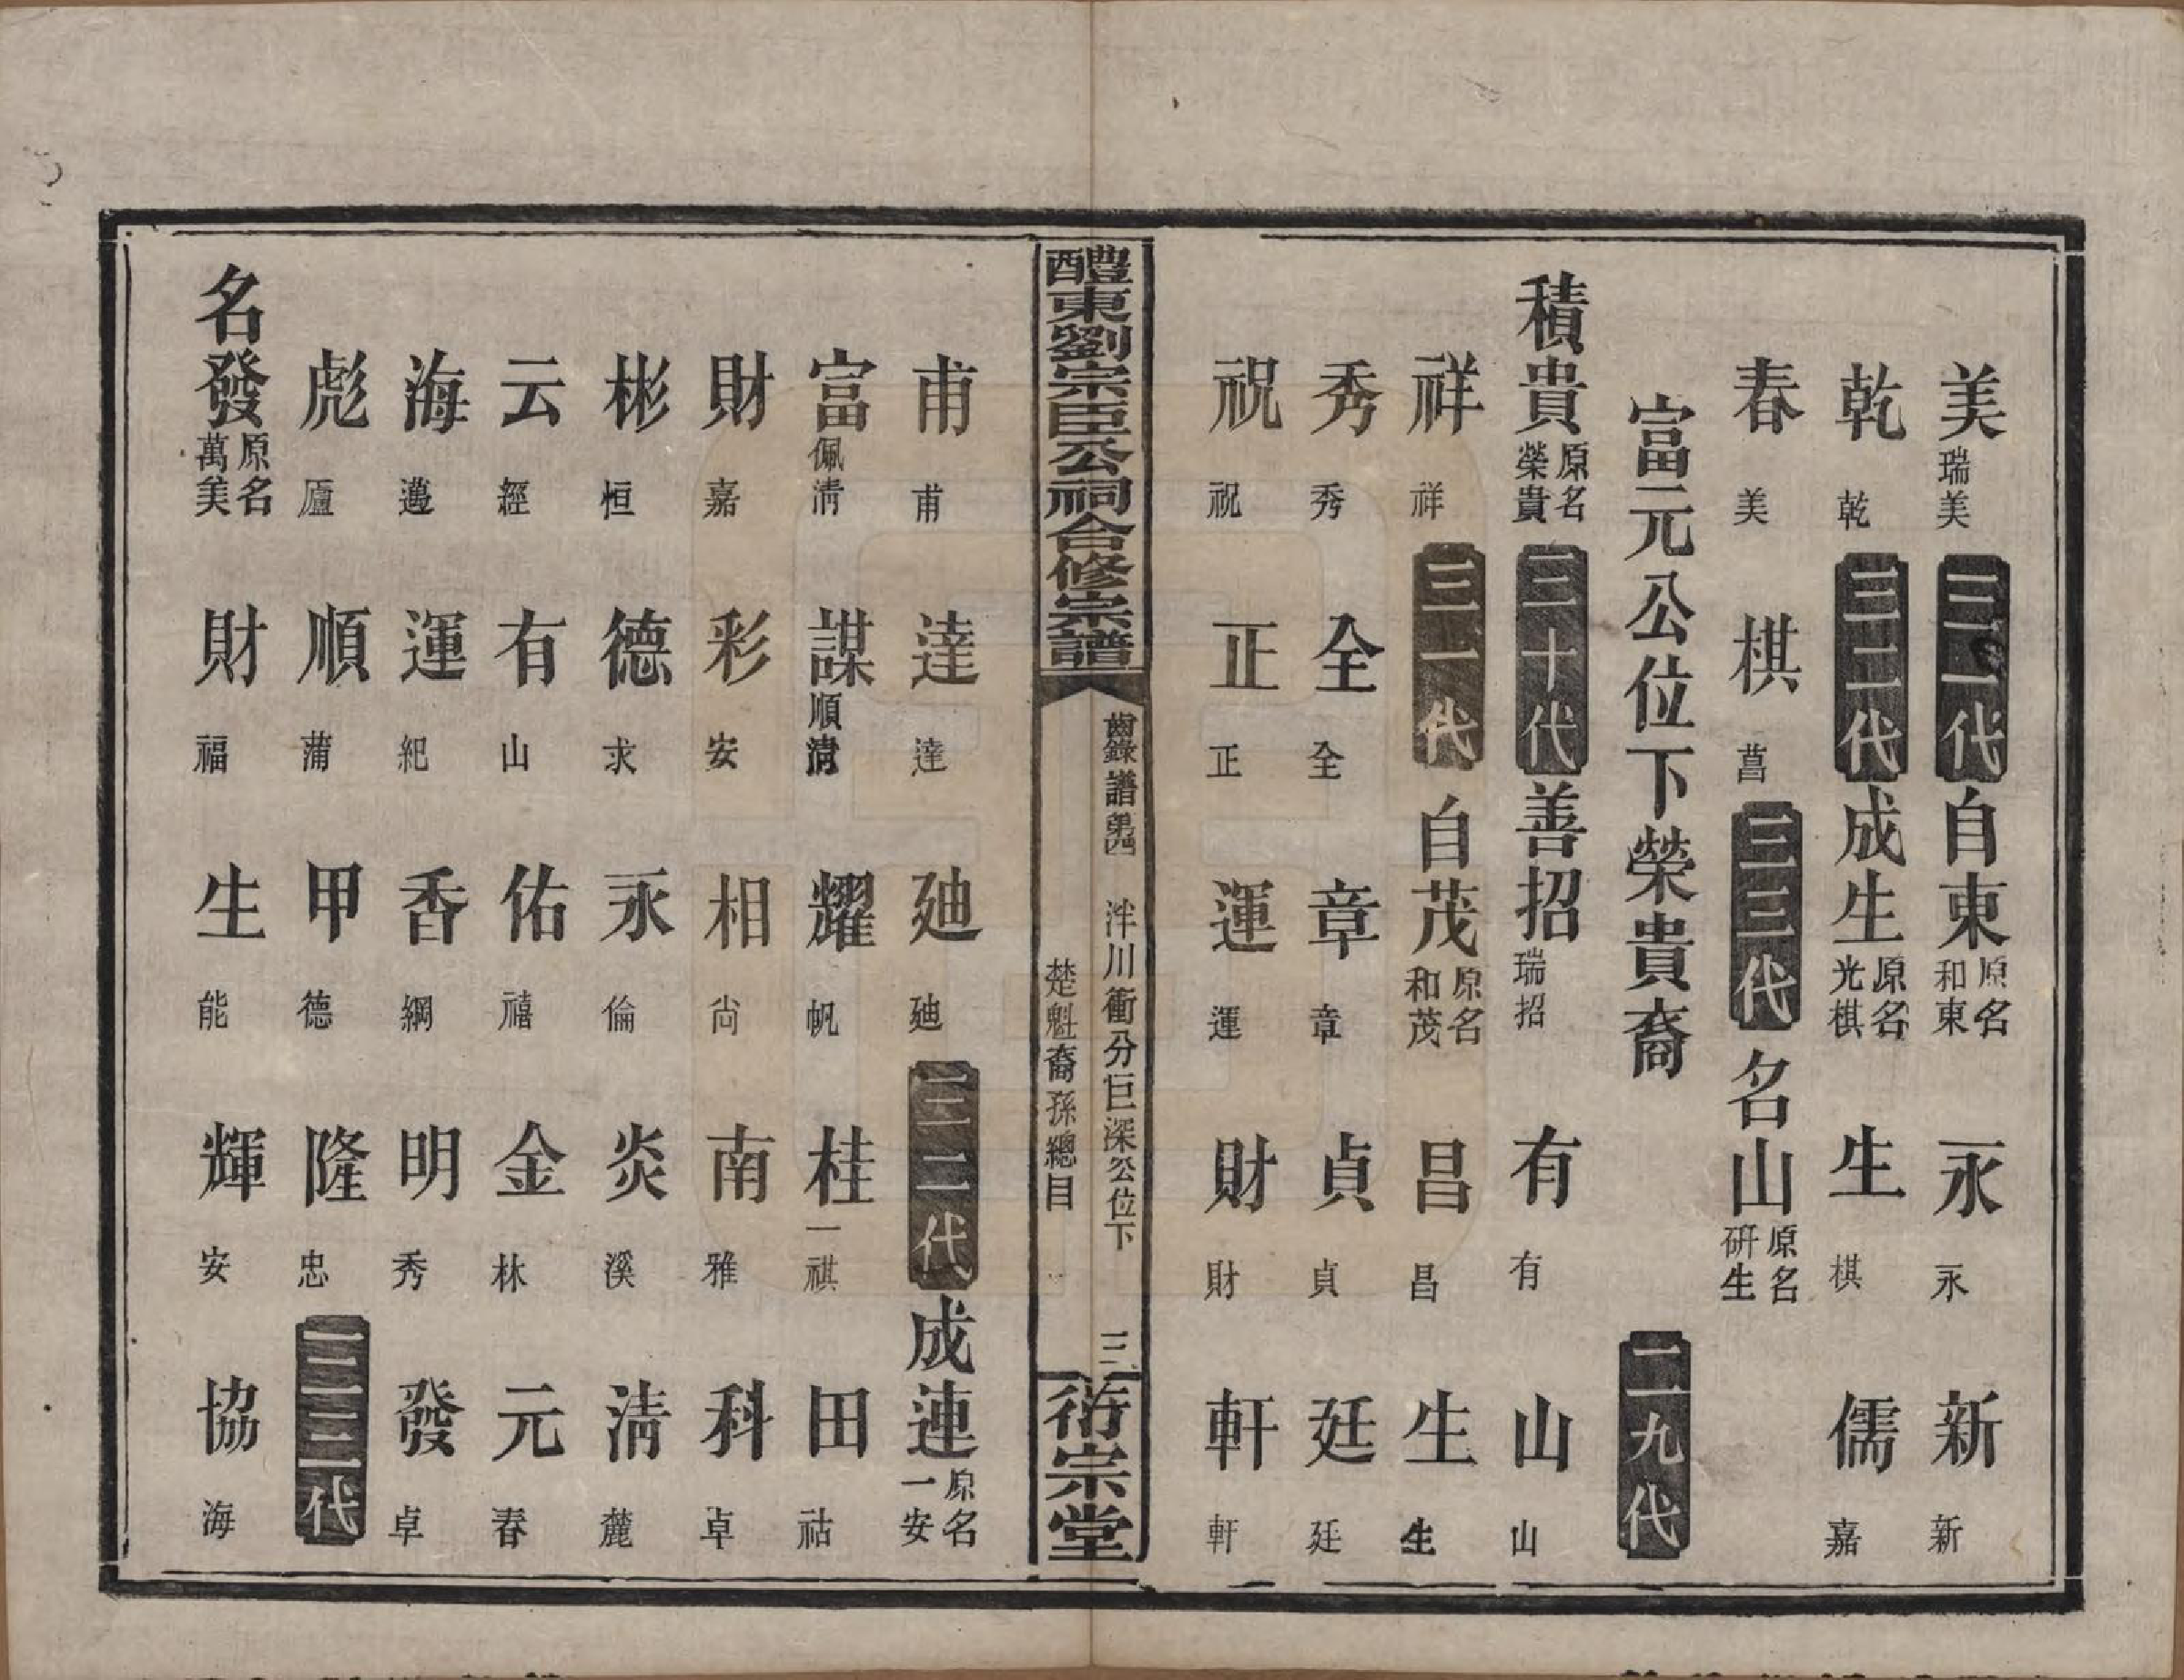 美瑞美 三一代 自東原名和東 永永 新新
乾乾 三二代 成生原名光棋 生棋 儒嘉
春美 棋菖 三三代 名山原名研生
富元公位下榮貴裔 二九代
積貴原名榮貴 三十代 善招瑞招 有有 山山
祥祥 三一代 自茂原名和茂 昌昌 生生
秀秀 全全 章章 貞貞 廷廷
祝祝 正正 運運 財財 軒軒
醴東劉宗臣公祠合修宗譜
齒錄譜第四 泮川衝分巨深公位下 三
楚魁裔孫總目
衍宗堂
甫甫 達達 廸廸 三二代 成連原名一安
富佩清 謀順清 耀帆 桂一祺 田祜
財嘉 彩安 相尚 南雅 科卓
彬恒 德求 永倫 炎溪 清麓
云經 有山 佑禧 金林 元春
海邁 運紀 香綱 明秀 發卓
彪廬 順蒲 甲德 隆忠 三三代
名發原名萬美 財福 生能 輝安 協海